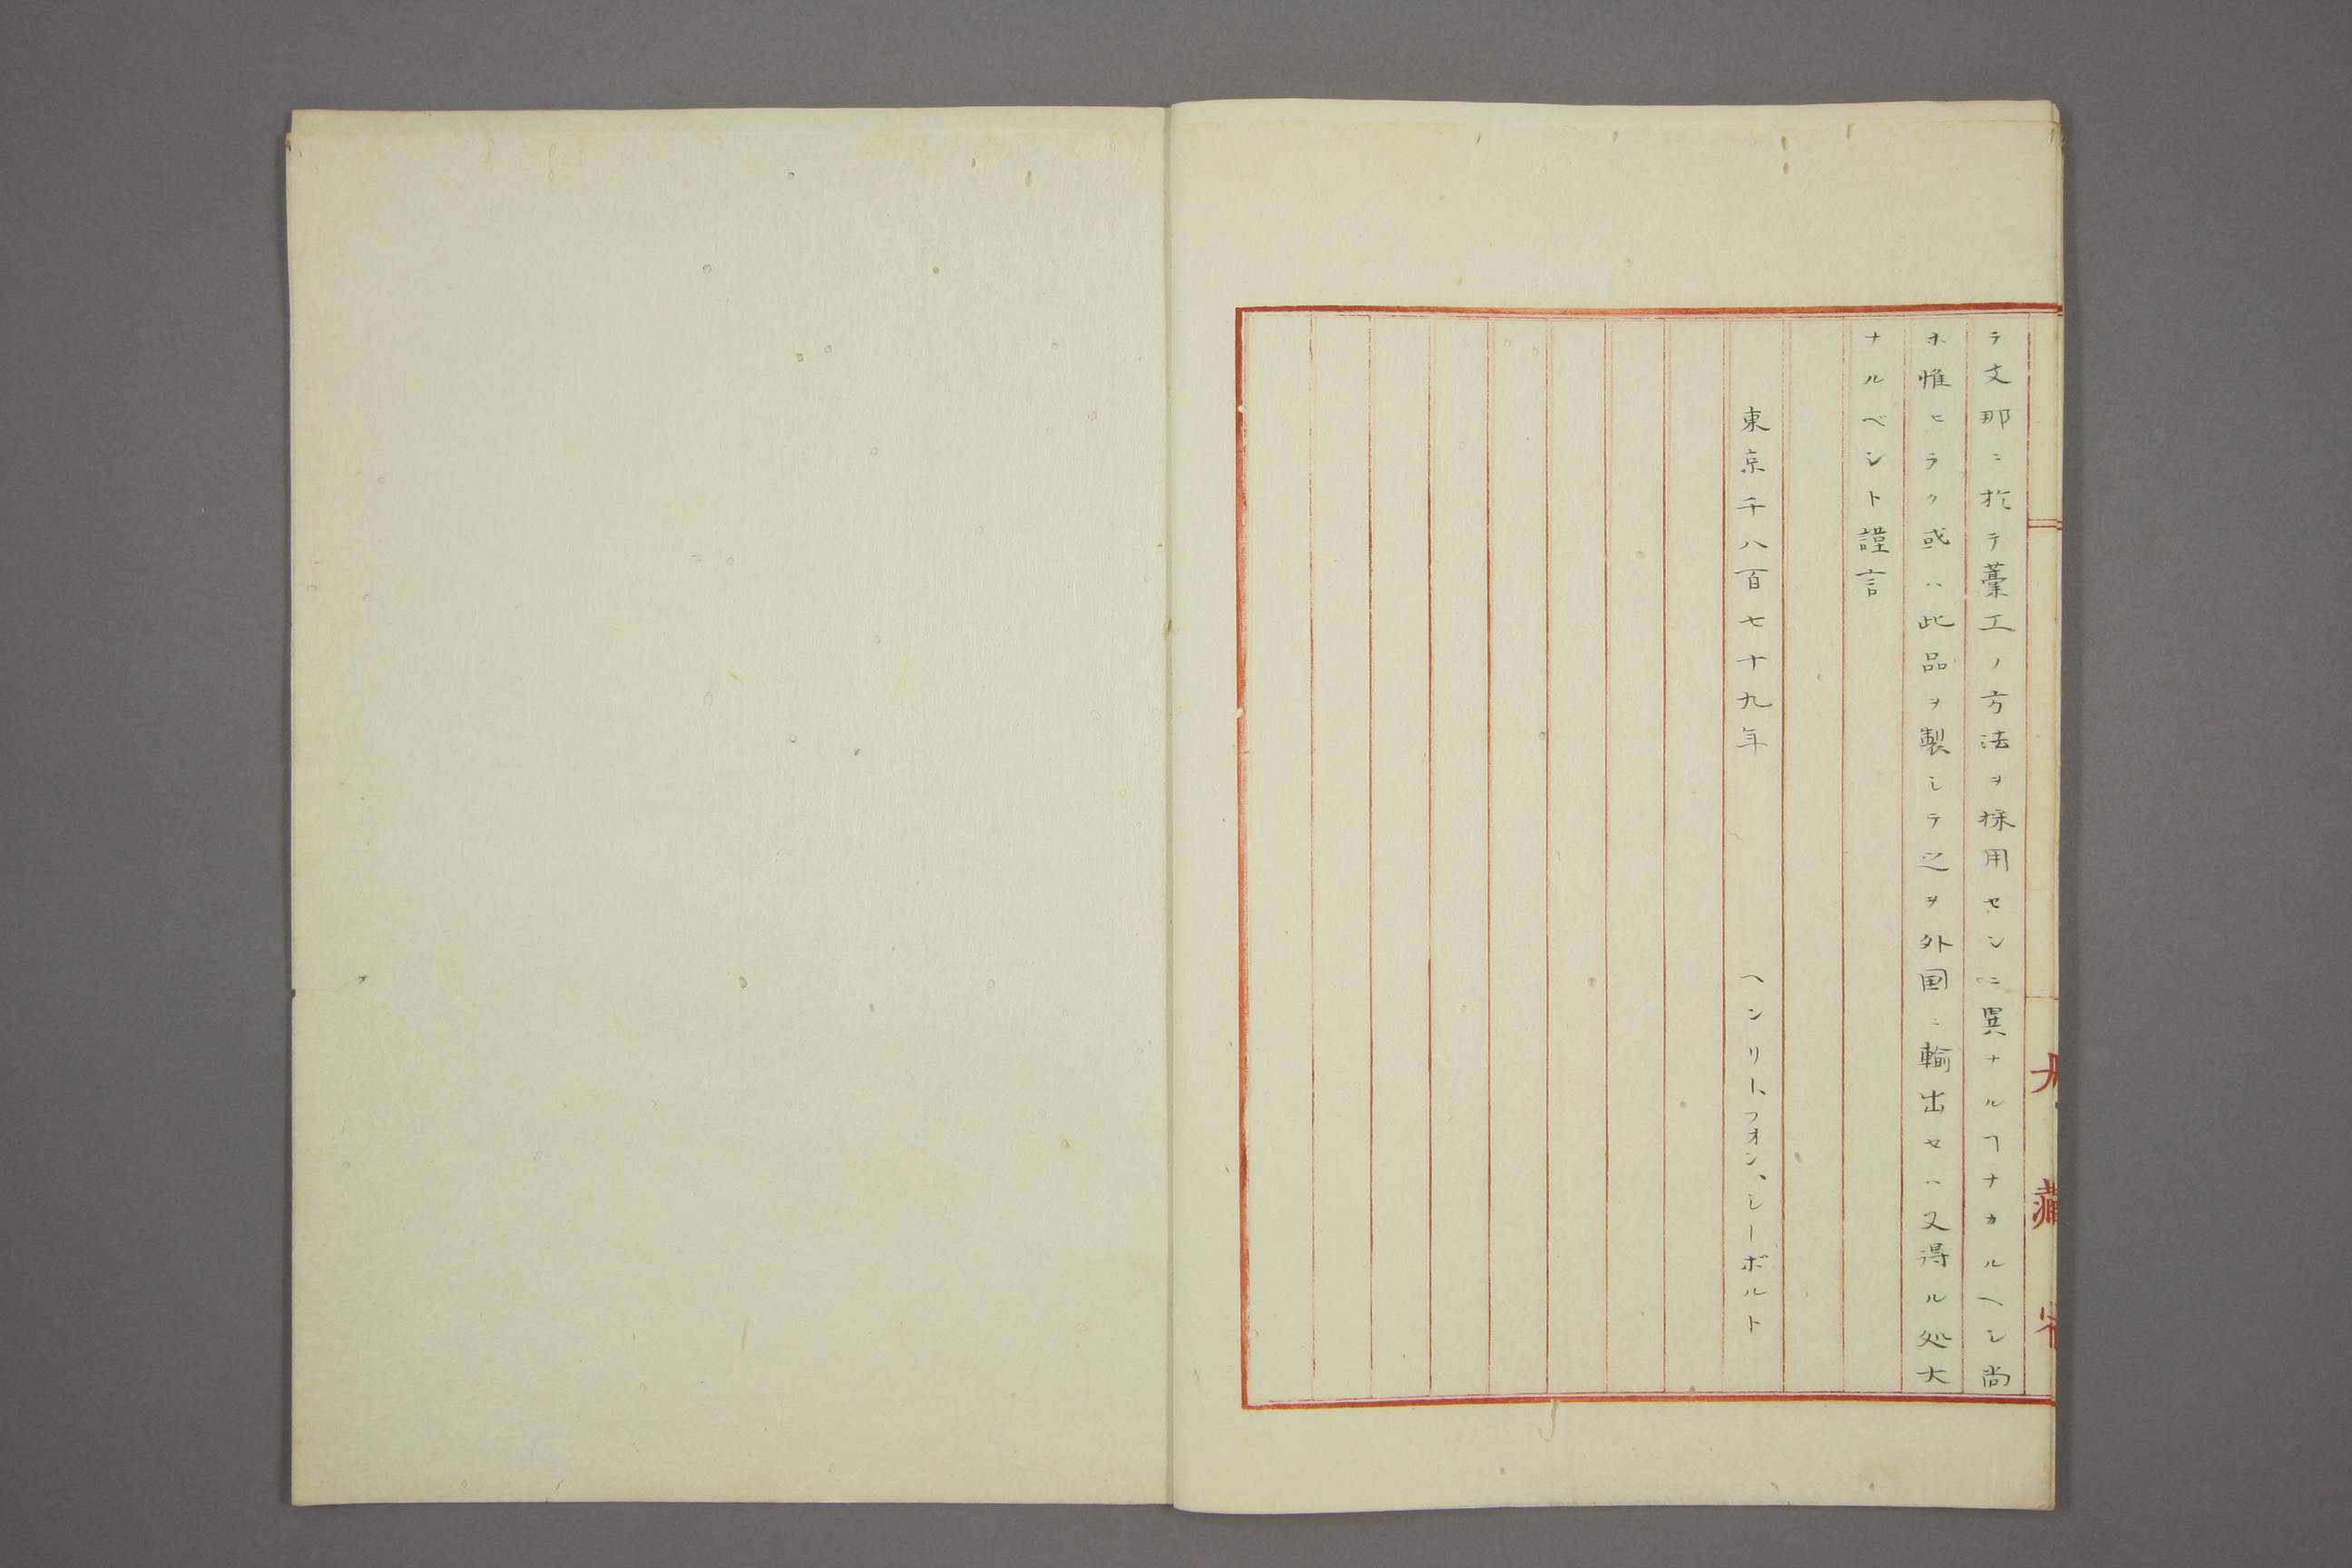 テ支那ニ於テ藁工ノ方法ヲ採用センニ異ナルヿナカルヘシ尚
ホ惟ヒラク或ハ此品ヲ製シテ之ヲ外国ニ輸出セハ又得ル処大
ナルベシト謹言
東京千八百七十九年 ヘンリト、フオン、シーボルト